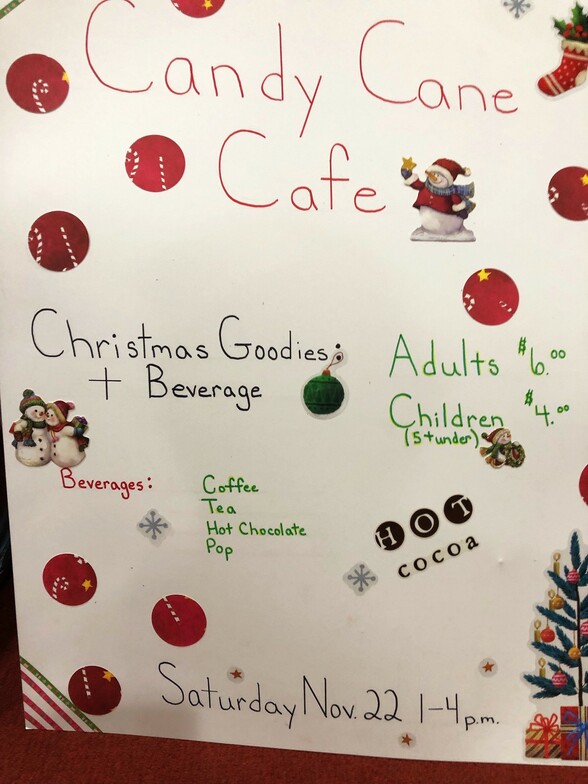 Candy Cane
Cafe
Christmas Goodies:
+ Beverage
Adults $6.00
Children $4.00
(5+under)
Beverages:
Coffee
Tea
Hot Chocolate
Pop
HOT
cocoa
Saturday Nov. 22 1-4 p.m.